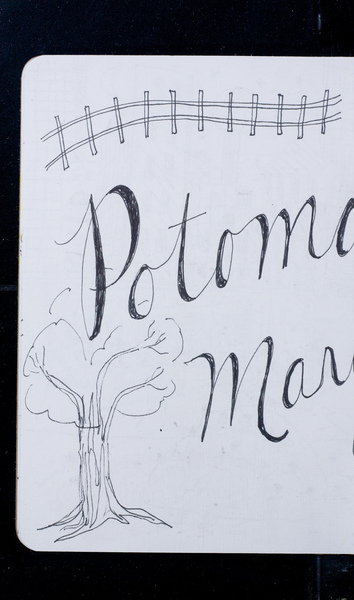 Potoma
Mary